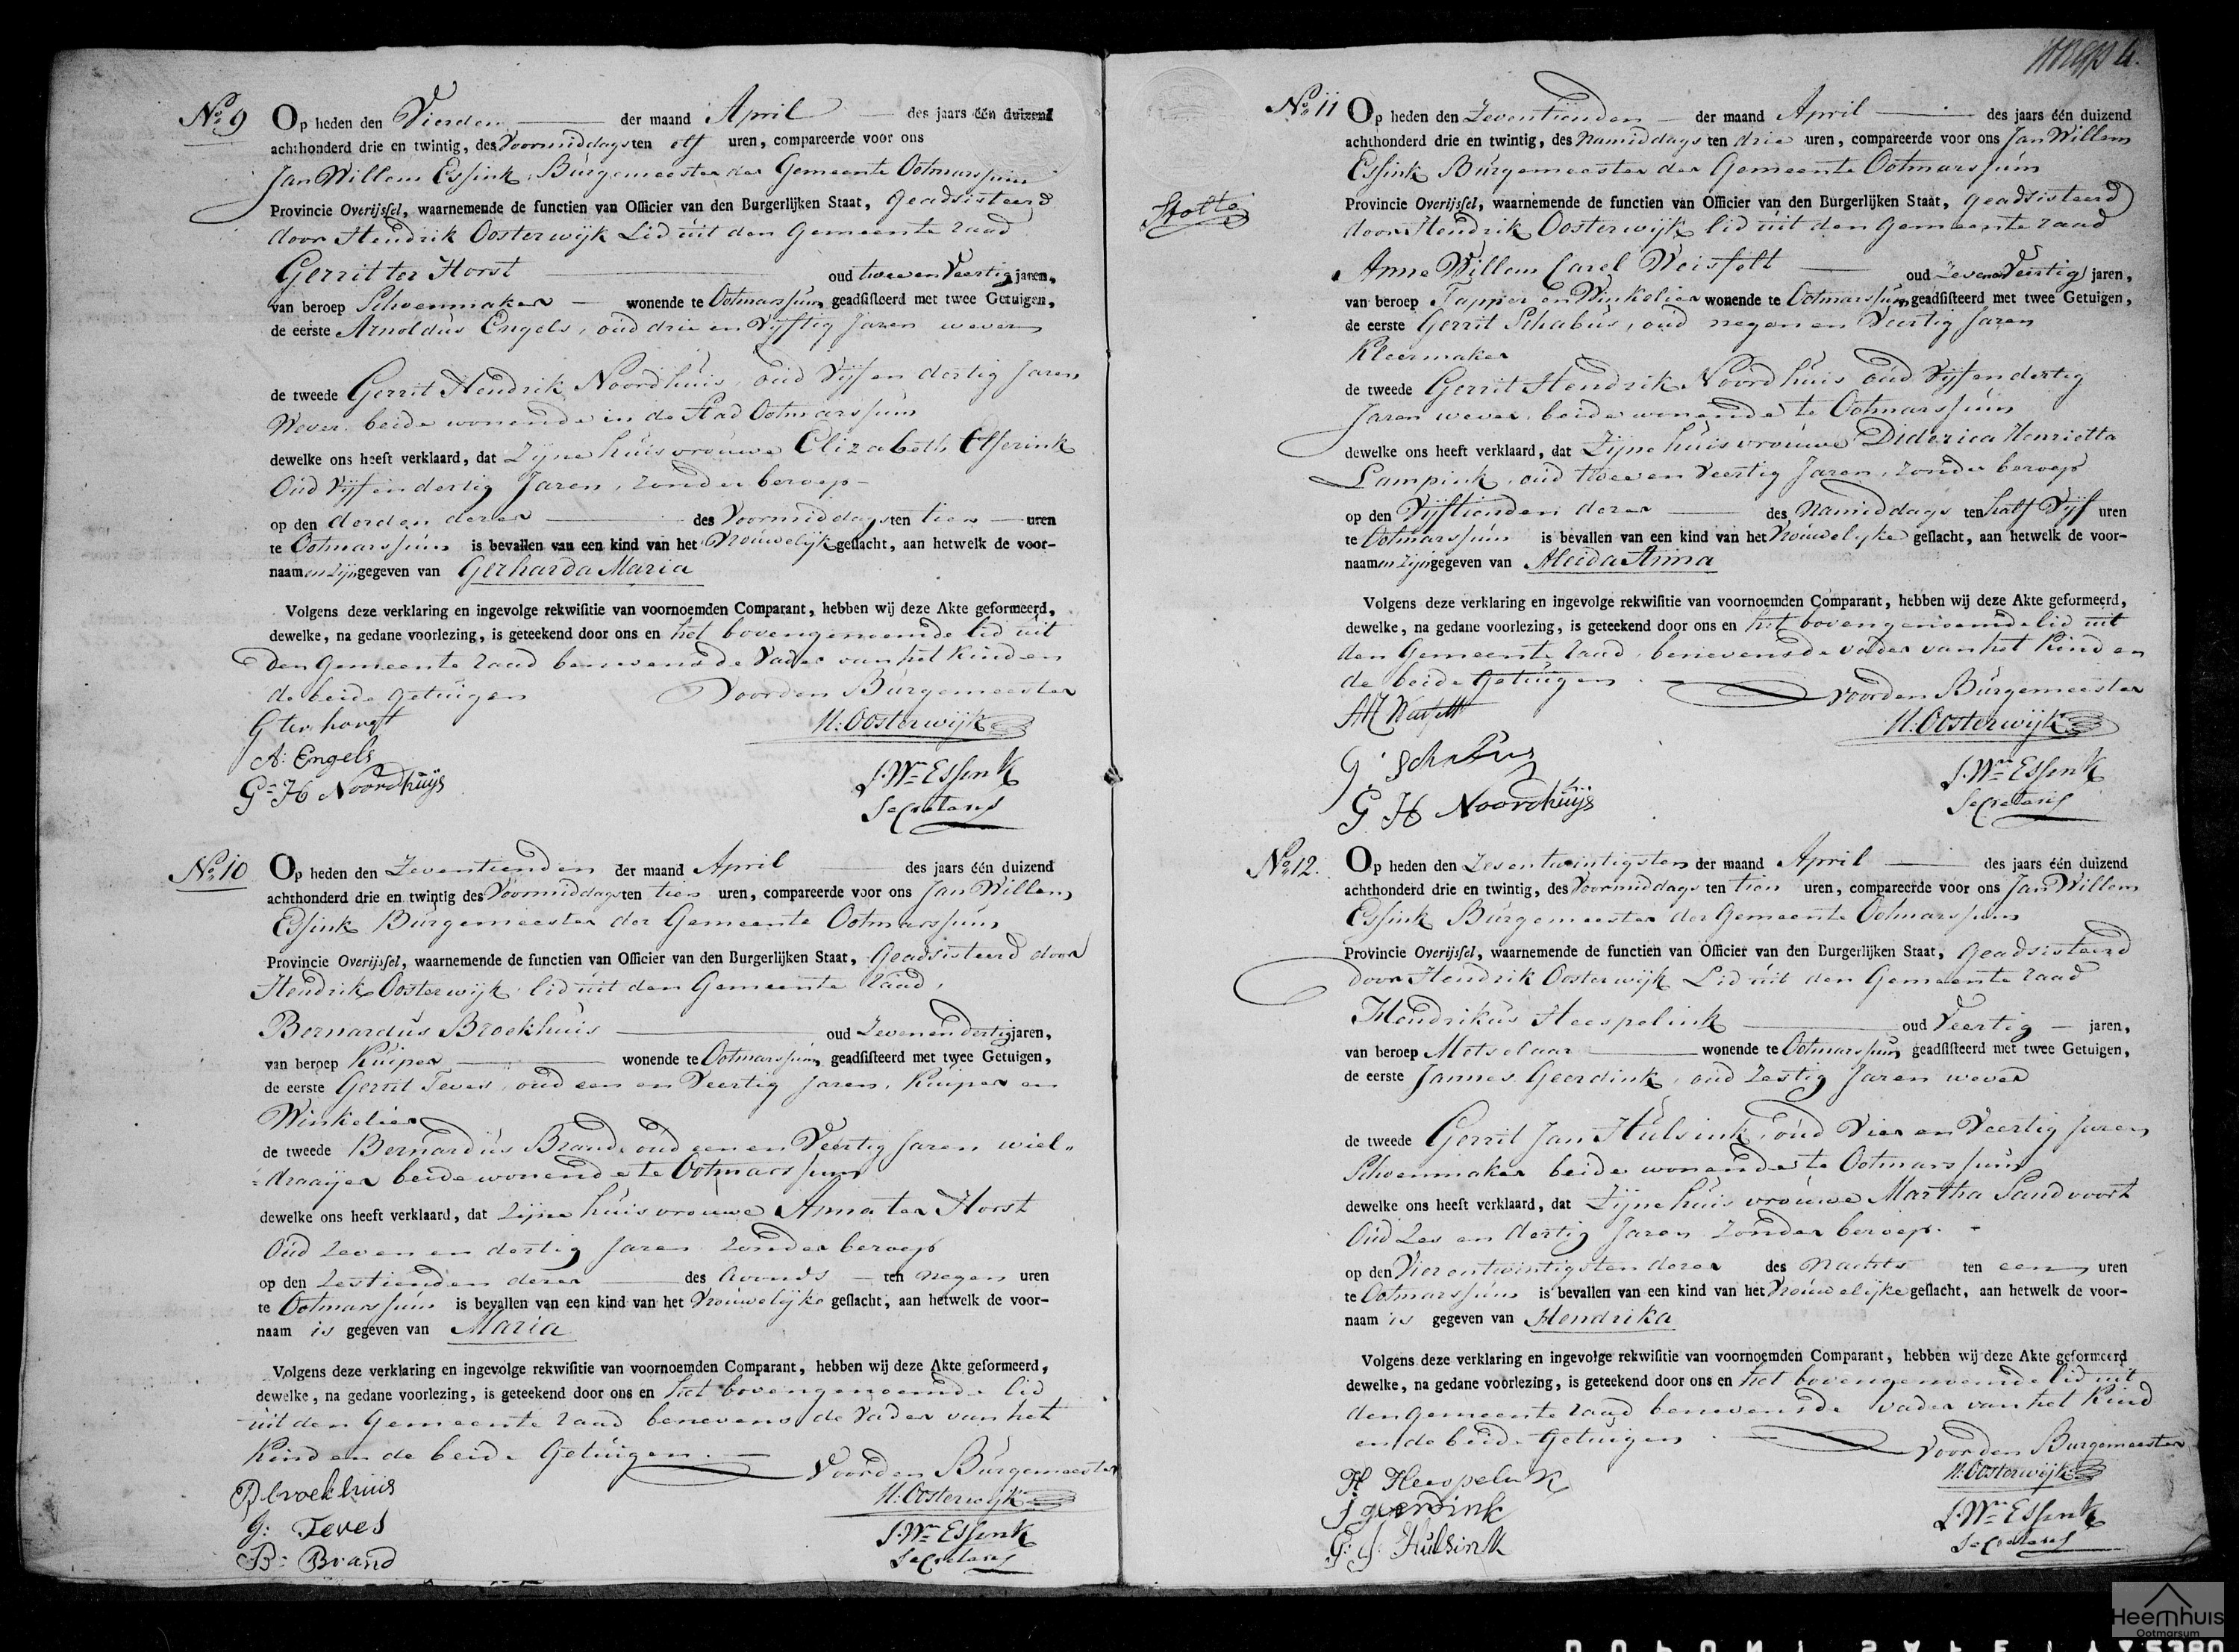 No 9 Op heden den Vierden der maand April des jaars één duizend
achthonderd drie en twintig, des Voormiddags ten elf uren, compareerde voor ons
Jan Willem Essink, Burgemeester der Gemeente Ootmarssum
Provincie Overijssel, waarnemende de functien van Officier van den Burgerlijken Staat, Geadsisteerd
door Hendrik Oosterwijk Lid uit den Gemeente raad
Gerrit ter Horst oud twee en Veertig jaren,
van beroep Schoenmaker wonende te Ootmarssum geadsisteerd met twee Getuigen,
de eerste Arnoldus Engels, oud drie en Vijftig Jaren wever
de tweede Gerrit Hendrik Noordhuis, oud Vijf en dertig Jaren
Wever beide wonende in de Stad Ootmarssum
dewelke ons heeft verklaard, dat Zijne huisvrouwe Elizabeth Elferink
Oud Vijf en dertig Jaren, zonder beroep
op den derden dezer des Voormiddags ten tien uren
te Ootmarssum is bevallen van een kind van het Vrouwelijk geslacht, aan hetwelk de voor-
naamen zijn gegeven van Gerharda Maria
Volgens deze verklaring en ingevolge rekwisitie van voornoemden Comparant, hebben wij deze Akte geformeerd,
dewelke, na gedane voorlezing, is geteekend door ons en het bovengenoemde lid uit
den Gemeente raad benevens de Vader van het Kind en
de beide getuigen Voor den Burgemeester
G ter horst H: Oosterwijk
A: Engels J. Wm Essink
G: H Noordhuijs Secretaris
No 10 Op heden den Zeventienden der maand April des jaars één duizend
achthonderd drie en twintig des Voormiddags ten tien uren, compareerde voor ons Jan Willem
Essink Burgemeester der Gemeente Ootmarssum
Provincie Overijssel, waarnemende de functien van Officier van den Burgerlijken Staat, Geadsisteerd door
Hendrik Oosterwijk lid uit den Gemeente Raad,
Bernardus Broekhuis oud Zeven en dertig jaren,
van beroep Kuiper wonende te Ootmarssum geadsisteerd met twee Getuigen,
de eerste Gerrit Teves, oud een en Veertig Jaren, Kuiper en
Winkelier
de tweede Bernardus Brand oud een en Veertig Jaren wiel=
=draayer beide wonende te Ootmarssum
dewelke ons heeft verklaard, dat zijne huisvrouwe Anna ter Horst
Oud zeven en dertig Jaren zonder beroep
op den zestienden dezer des Avonds ten negen uren
te Ootmarssum is bevallen van een kind van het Vrouwelijke geslacht, aan hetwelk de voor-
naam is gegeven van Maria
Volgens deze verklaring en ingevolge rekwisitie van voornoemden Comparant, hebben wij deze Akte geformeerd,
dewelke, na gedane voorlezing, is geteekend door ons en het bovengenoemde lid
uit den Gemeente raad benevens de Vader van het
Kind en de beide Getuigen. Voor den Burgemeester
B broekhuis H: Oosterwijk
G: Teves J. Wm Essink
B: Brand Secretaris
No 11 Op heden den Zeventienden der maand April des jaars één duizend
achthonderd drie en twintig, des Namiddags ten drie uren, compareerde voor ons Jan Willem
Essink Burgemeester der Gemeente Ootmarssum
Provincie Overijssel, waarnemende de functien van Officier van den Burgerlijken Staat, geadsisteerd
door Hendrik Oosterwijk lid uit den Gemeente raad
Anne Willem Carel Weisfelt oud Zeven en Veertig jaren,
van beroep Tapper en Winkelier wonende te Ootmarssum geadsisteerd met twee Getuigen,
de eerste Gerrit Schabus, oud negen en Veertig Jaren
Kleermaker
de tweede Gerrit Hendrik Noordhuis oud Vijf en dertig
Jaren wever, beide wonende te Ootmarssum
dewelke ons heeft verklaard, dat Zijne huisvrouwe Diderica Henrietta
Lampink, oud twee en Veertig Jaren, zonder beroep
op den Vijftienden dezer des Namiddags ten half Vijf uren
te Ootmarssum is bevallen van een kind van het Vrouwelijke geslacht, aan hetwelk de voor-
naamen zijn gegeven van Aleida Anna
Volgens deze verklaring en ingevolge rekwisitie van voornoemden Comparant, hebben wij deze Akte geformeerd,
dewelke, na gedane voorlezing, is geteekend door ons en het bovengenoemde lid uit
den Gemeente raad, benevens de vader van het Kind en
de beide Getuigen. Voor den Burgemeester
H. Oosterwijk
G Schabus J. Wm Essink
G H Noordhuijs Secretaris
No 12. Op heden den Zesentwintigsten der maand April des jaars één duizend
achthonderd drie en twintig, des Voormiddags ten tien uren, compareerde voor ons Jan Willem
Essink Burgemeester der Gemeente Ootmarssum
Provincie Overijssel, waarnemende de functien van Officier van den Burgerlijken Staat, geadsisteerd
door Hendrik Oosterwijk Lid uit den Gemeente raad
Hendrikus Heespelink oud Veertig jaren,
van beroep Metselaar wonende te Ootmarssum geadsisteerd met twee Getuigen,
de eerste Jannes Geerdink, oud Zestig Jaren wever
de tweede Gerrit Jan Hulsink, oud Vier en Veertig Jaren
Schoenmaker beide wonende te Ootmarssum
dewelke ons heeft verklaard, dat Zijne huisvrouwe Martha Sandvoort
Oud Zes en dertig Jaren zonder beroep.
op den Vierentwintigsten dezer des Nachts ten een uren
te Ootmarssum is bevallen van een kind van het Vrouwelijke geslacht, aan hetwelk de voor-
naam is gegeven van Hendrika
Volgens deze verklaring en ingevolge rekwisitie van voornoemden Comparant, hebben wij deze Akte geformeerd
dewelke, na gedane voorlezing, is geteekend door ons en het bovengenoemde lid uit
den gemeente raad benevens de vader van het Kind
en de beide Getuigen. Voor den Burgemeester
H Heespelink H: Oosterwijk
J geerdink J. Wm Essink
G: J: Hulsink Secretaris
Heemhuis
Ootmarsum